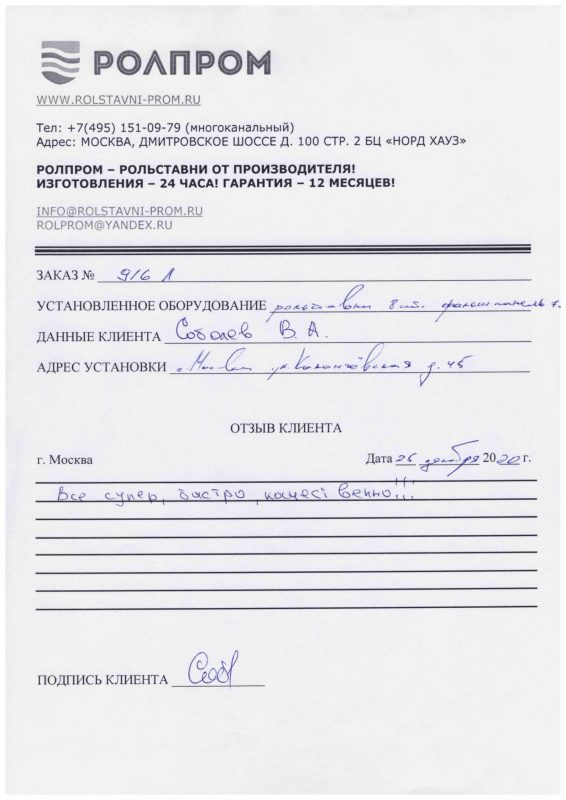 РОЛПРОМ
WWW.ROLSTAVNI-PROM.RU
Тел: +7(495) 151-09-79 (многоканальный)
Адрес: МОСКВА, ДМИТРОВСКОЕ ШОССЕ Д. 100 СТР. 2 БЦ «НОРД ХАУЗ»
РОЛПРОМ – РОЛЬСТАВНИ ОТ ПРОИЗВОДИТЕЛЯ!
ИЗГОТОВЛЕНИЯ – 24 ЧАСА! ГАРАНТИЯ – 12 МЕСЯЦЕВ!
INFO@ROLSTAVNI-PROM.RU
ROLPROM@YANDEX.RU
ЗАКАЗ № 916 Л
УСТАНОВЛЕННОЕ ОБОРУДОВАНИЕ рольставни 8 шт. фальшпанель
ДАННЫЕ КЛИЕНТА Соболев В. А.
АДРЕС УСТАНОВКИ г. Москва ул. Каланчёвская д. 45
ОТЗЫВ КЛИЕНТА
г. Москва Дата 26 декабря 2020 г.
Все супер, быстро, качественно!!!
ПОДПИСЬ КЛИЕНТА Соб